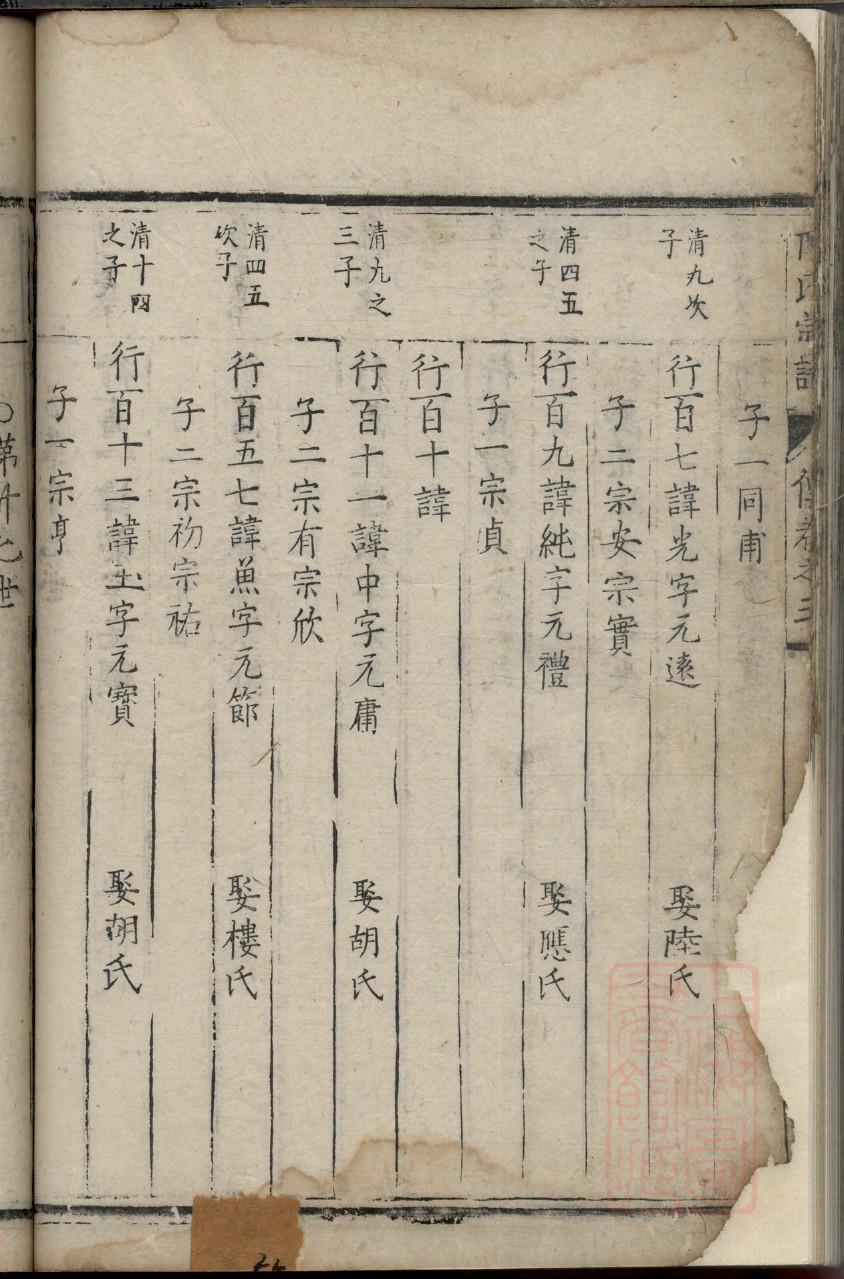 氏宗譜
卷之三
子一同甫
清九次子
行百七諱光字元遠 娶陸氏
子二宗安宗實
清四五之子
行百九諱純字元禮 娶應氏
子一宗貞
行百十諱
清九之三子
行百十一諱中字元庸 娶胡氏
子二宗有宗欣
清四五次子
行百五七諱魚字元節 娶樓氏
子二宗初宗祐
清十四之子
行百十三諱玉字元寶 娶胡氏
子一宗亨
○第廿七世